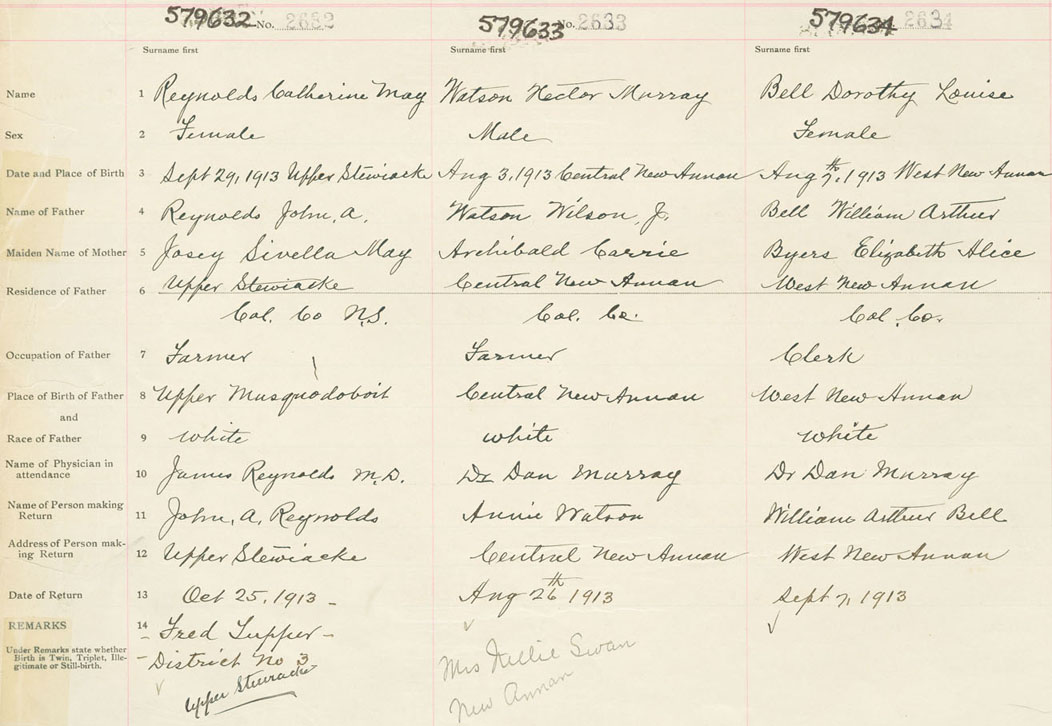 579632 No. 2632 579633 No. 2633 579634 2634
Surname first Surname first Surname first
Name 1 Reynolds Catherine May Watson Hector Murray Bell Dorothy Louise
Sex 2 Female Male Female
Date and Place of Birth 3 Sept 29, 1913 Upper Stewiacke Aug 3, 1913 Central New Annan Aug 7th, 1913 West New Annan
Name of Father 4 Reynolds John, A. Watson Wilson, J. Bell William Arthur
Maiden Name of Mother 5 Josey Sivella May Archibald Carrie Byers Elizabeth Alice
Residence of Father 6 Upper Stewiacke Central New Annan West New Annan
Col. Co N.S. Col. Co. Col. Co.
Occupation of Father 7 Farmer Farmer Clerk
Place of Birth of Father 8 Upper Musquodoboit Central New Annan West New Annan
and
Race of Father 9 white white white
Name of Physician in
attendance 10 James Reynolds M.D. Dr Dan Murray Dr Dan Murray
Name of Person making
Return 11 John, A, Reynolds Annie Watson William Arthur Bell
Address of Person mak-
ing Return 12 Upper Stewiacke Central New Annan West New Annan
Date of Return 13 Oct 25, 1913 Aug 26th 1913 Sept 7, 1913
REMARKS 14 Fred Tupper
Under Remarks state whether
Birth is Twin, Triplet, Ille-
gitimate or Still-birth.
District No 3
Upper Stewiacke
Mrs Nellie Swan
New Annan